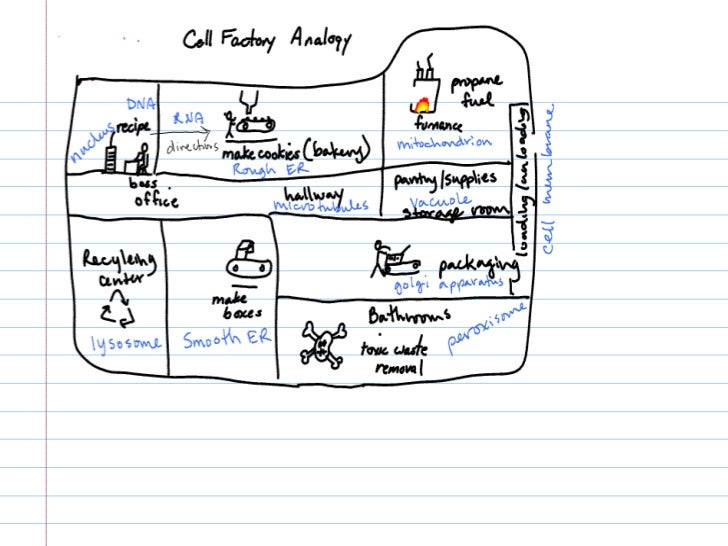 Cell Factory Analogy
DNA
nucleus
recipe
boss
office
RNA
directions
make cookies (bakery)
Rough ER
propane
fuel
furnance
mitochondrion
loading/unloading
cell membrane
hallway
microtubules
pantry/supplies
vacuole
storage room
Recyleing
center
lysosome
make
boxes
Smooth ER
packaging
golgi apparatus
Bathrooms
toxic waste
removal
peroxisome